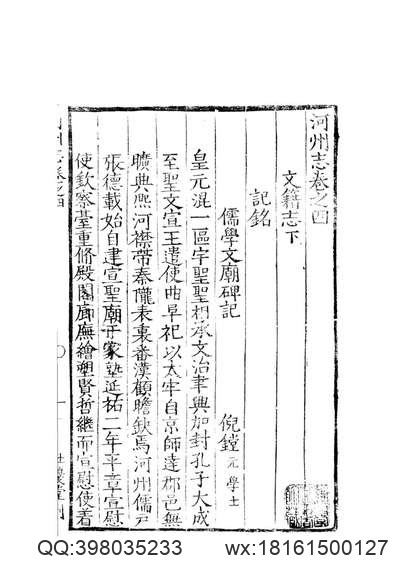 河州志卷之四
文籍志下
記銘
儒學文廟碑記 倪鏜 元學士
皇元混一區宇聖聖相承文治聿興加封孔子大成
至聖文宣王遣使曲阜祀以太牢自京師達郡邑無
曠典熙河襟帶秦隴表裏番漢顧瞻缺焉河州儒戶
張德載始自建宣聖廟开家塾延祐二年平章宣慰
使欽察臺重脩殿閣廊廡繪塑賢哲繼而宣慰使着
QQ:398035233 wx:18161500127